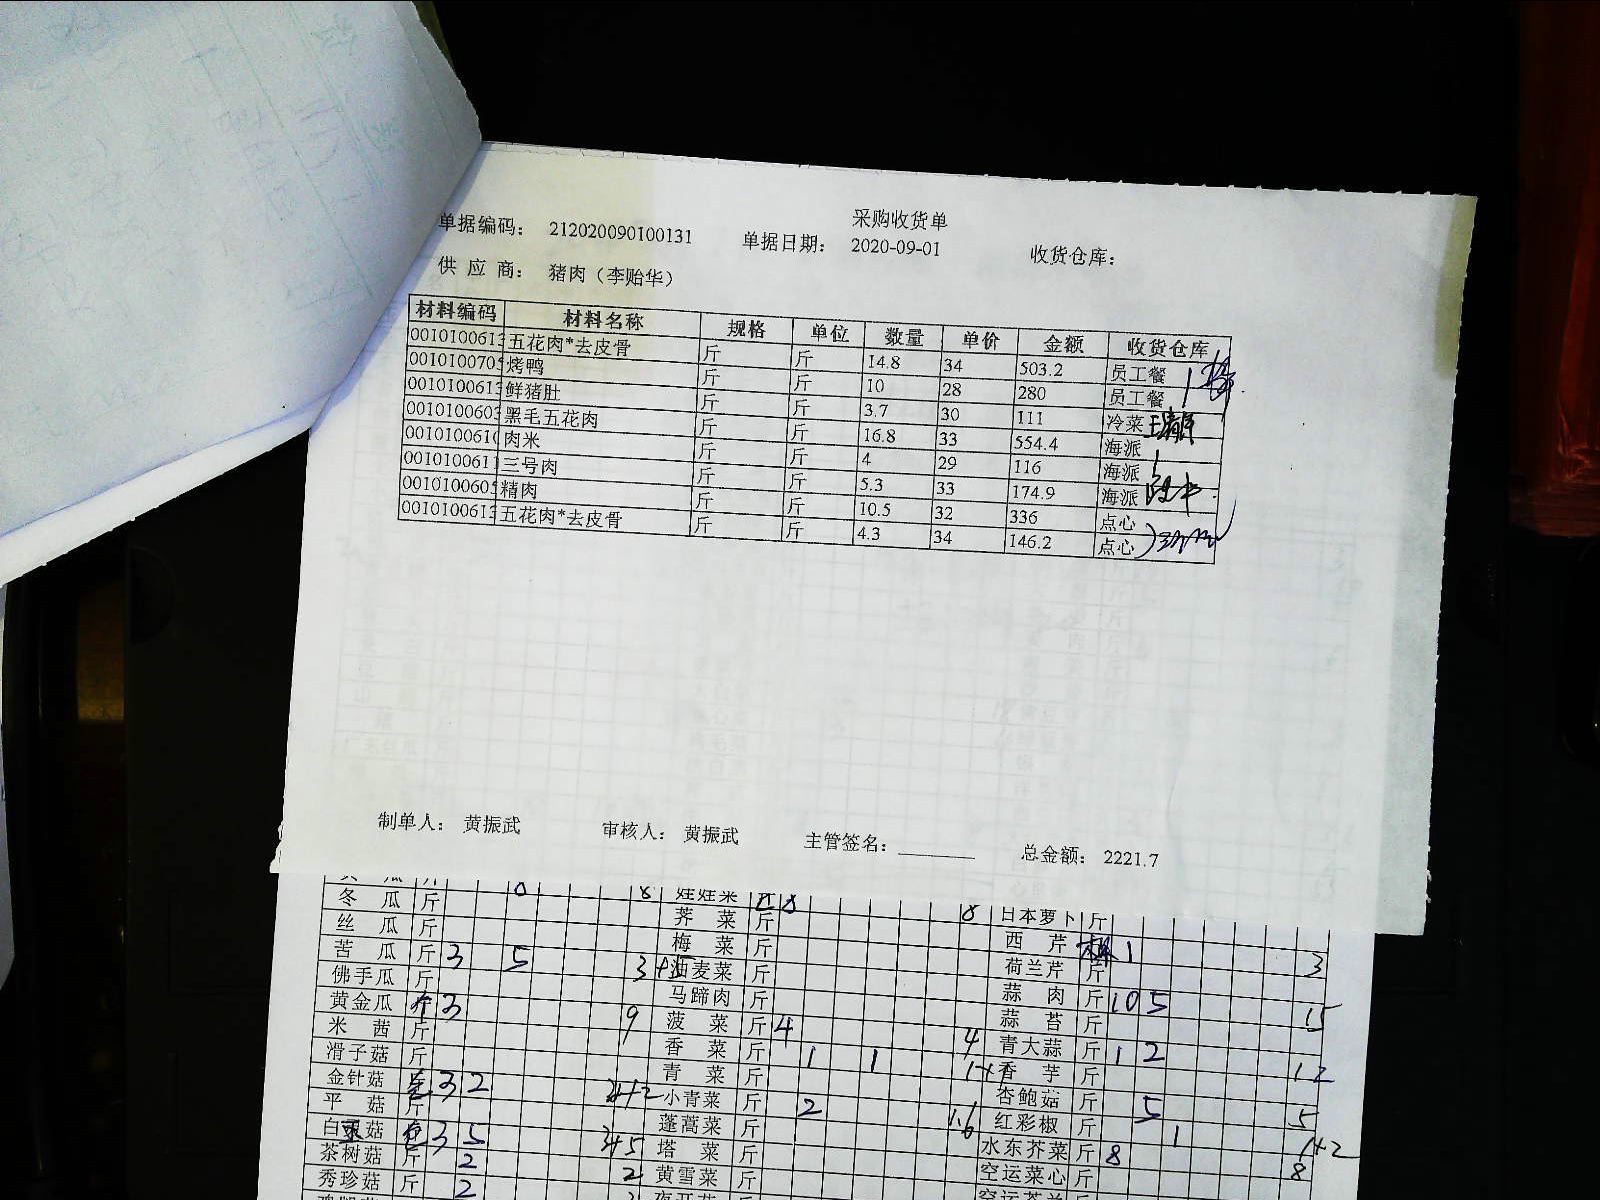 采购收货单
单据编码： 212020090100131 单据日期： 2020-09-01 收货仓库：
供 应 商： 猪肉（李贻华）
材料编码 材料名称 规格 单位 数量 单价 金额 收货仓库
001010061 五花肉*去皮骨 斤 斤 14.8 34 503.2 员工餐
001010070 烤鸭 斤 斤 10 28 280 员工餐
001010061 鲜猪肚 斤 斤 3.7 30 111 冷菜
001010060 黑毛五花肉 斤 斤 16.8 33 554.4 海派
001010061 肉米 斤 斤 4 29 116 海派
001010061 三号肉 斤 斤 5.3 33 174.9 海派
001010060 精肉 斤 斤 10.5 32 336 点心
001010061 五花肉*去皮骨 斤 斤 4.3 34 146.2 点心
制单人： 黄振武 审核人： 黄振武 主管签名： 总金额： 2221.7
8 娃娃菜 8 8 日本萝卜 斤
冬 瓜 斤 荠 菜 斤 西 芹 1 3
丝 瓜 斤 梅 菜 斤 荷兰芹 斤
苦 瓜 斤 3 5 3+5 油麦菜 斤 蒜 肉 斤 10 5 15
佛手瓜 斤 马蹄肉 斤 蒜 苔 斤
黄金瓜 斤 3 9 菠 菜 斤 4 4 青大蒜 斤 1 2 12
米 茜 斤 香 菜 斤 1 1 1+1 香 芋 斤
滑子菇 斤 青 菜 斤 杏鲍菇 斤 5 5
金针菇 包 3 2 小青菜 斤 2 1.6 红彩椒 斤 1 1+2
平 菇 斤 蓬蒿菜 斤 水东芥菜 斤 8 8
白玉菇 包 3 5 3+5 塔 菜 斤 空运菜心 斤
茶树菇 斤 2 2 黄雪菜 斤
秀珍菇 斤 2